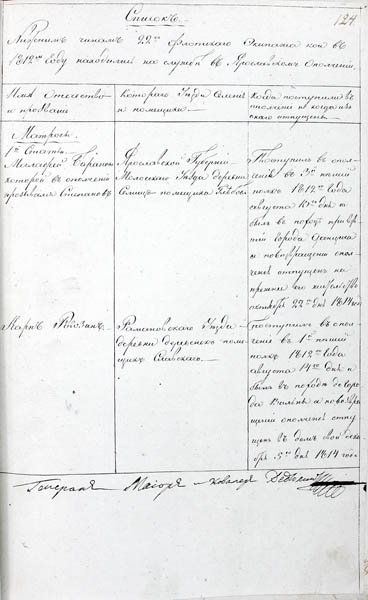 124
Списокъ
Нижнимъ чинамъ 22го Флотскаго Экипажа кои въ
1812мъ Году находились на службѣ въ Ярославскомъ Ополченіи.
Имя Отечество
и прозваніе
Котораго Уѣзда Селенія
и помѣщика
Когда поступили въ
ополченіе и когда изъ
онаго отпущены
Матросы
1й Статьи
Баранов
которой въ ополченіи
прозывался Степановъ
Ярославской Губерніи
Моложскаго Уѣзда деревни
помѣщика
Поступилъ въ ополченіе
въ 3й пѣшій
полкъ 1812го Года
августа дня и
былъ въ походѣ при
города Данцига
и по возвращеніи ополченія
отпущенъ на
прежнее его жительство
октября 22го дня 1814 года
Маркъ
Романовскаго Уѣзда
деревни помѣщикъ
поступилъ въ ополченіе
въ 1й пѣшій
полкъ 1812го Года
августа 14го дня и
былъ въ походѣ до города
Вильны и по возвращеніи
ополченія отпущенъ
въ домъ свой
5го дня 1814 года
Генералъ Маіоръ и Кавалеръ